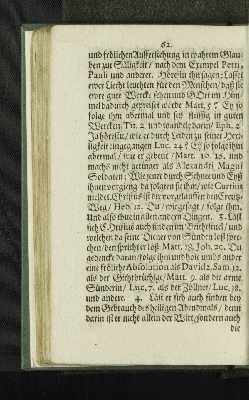 62.
und frölichen Aufferstehung in wahrem Glau-
ben zur Säligkeit / nach dem Exempel Petri,
Pauli und anderer. Hörestu ihn sagen; Lasset
ewer Liecht leuchten für den Menschen / daß sie
ewre gute Wercke sehen und GOtt im Him-
mel dadurch gepreiset werde Matt. 5. Ey so
folge ihm abermal und sey fleissig in guten
Wercken. Tit. 2. und wandle darin / Eph. 2.
Ja hörestu / wie er durch Leiden zu seiner Herr-
ligkeit eingegangen Luc. 24. Ey so folge ihm
abermal / wie er gebeut / Matt. 10. 16. und
machs nicht geringer als Alexandri Magni
Soldaten: Wie jener durch Schnee und Eyß
ihnen vorgieng / da folgten sie ihm / wie Curtius
meldet. Christus ist vorgelauffen den Creutz-
Weg / Heb. 12. folge ihm.
Und also ihue in allen andern Dingen. 3. Läst
sich Christus auch finden im Beichtstuel / und
welchen da seine Diener von Sünden loß spre-
chen / den spricht er loß Matt. 18. Joh. 20.
gedencke daran / folge ihm und hole umbs ander
eine fröliche Absolution als David 2. Sam. 12.
als der Gichtbrüchige / Matt. 9. als die arme
Sünderin / Luc. 7. als der Zöllner / Luc. 18.
und andere. 4. Läst er sich auch finden bey
dem Gebrauch des heiligen Abendmals / denn
darin ist er nicht allein der Wirt / sondern auch
die